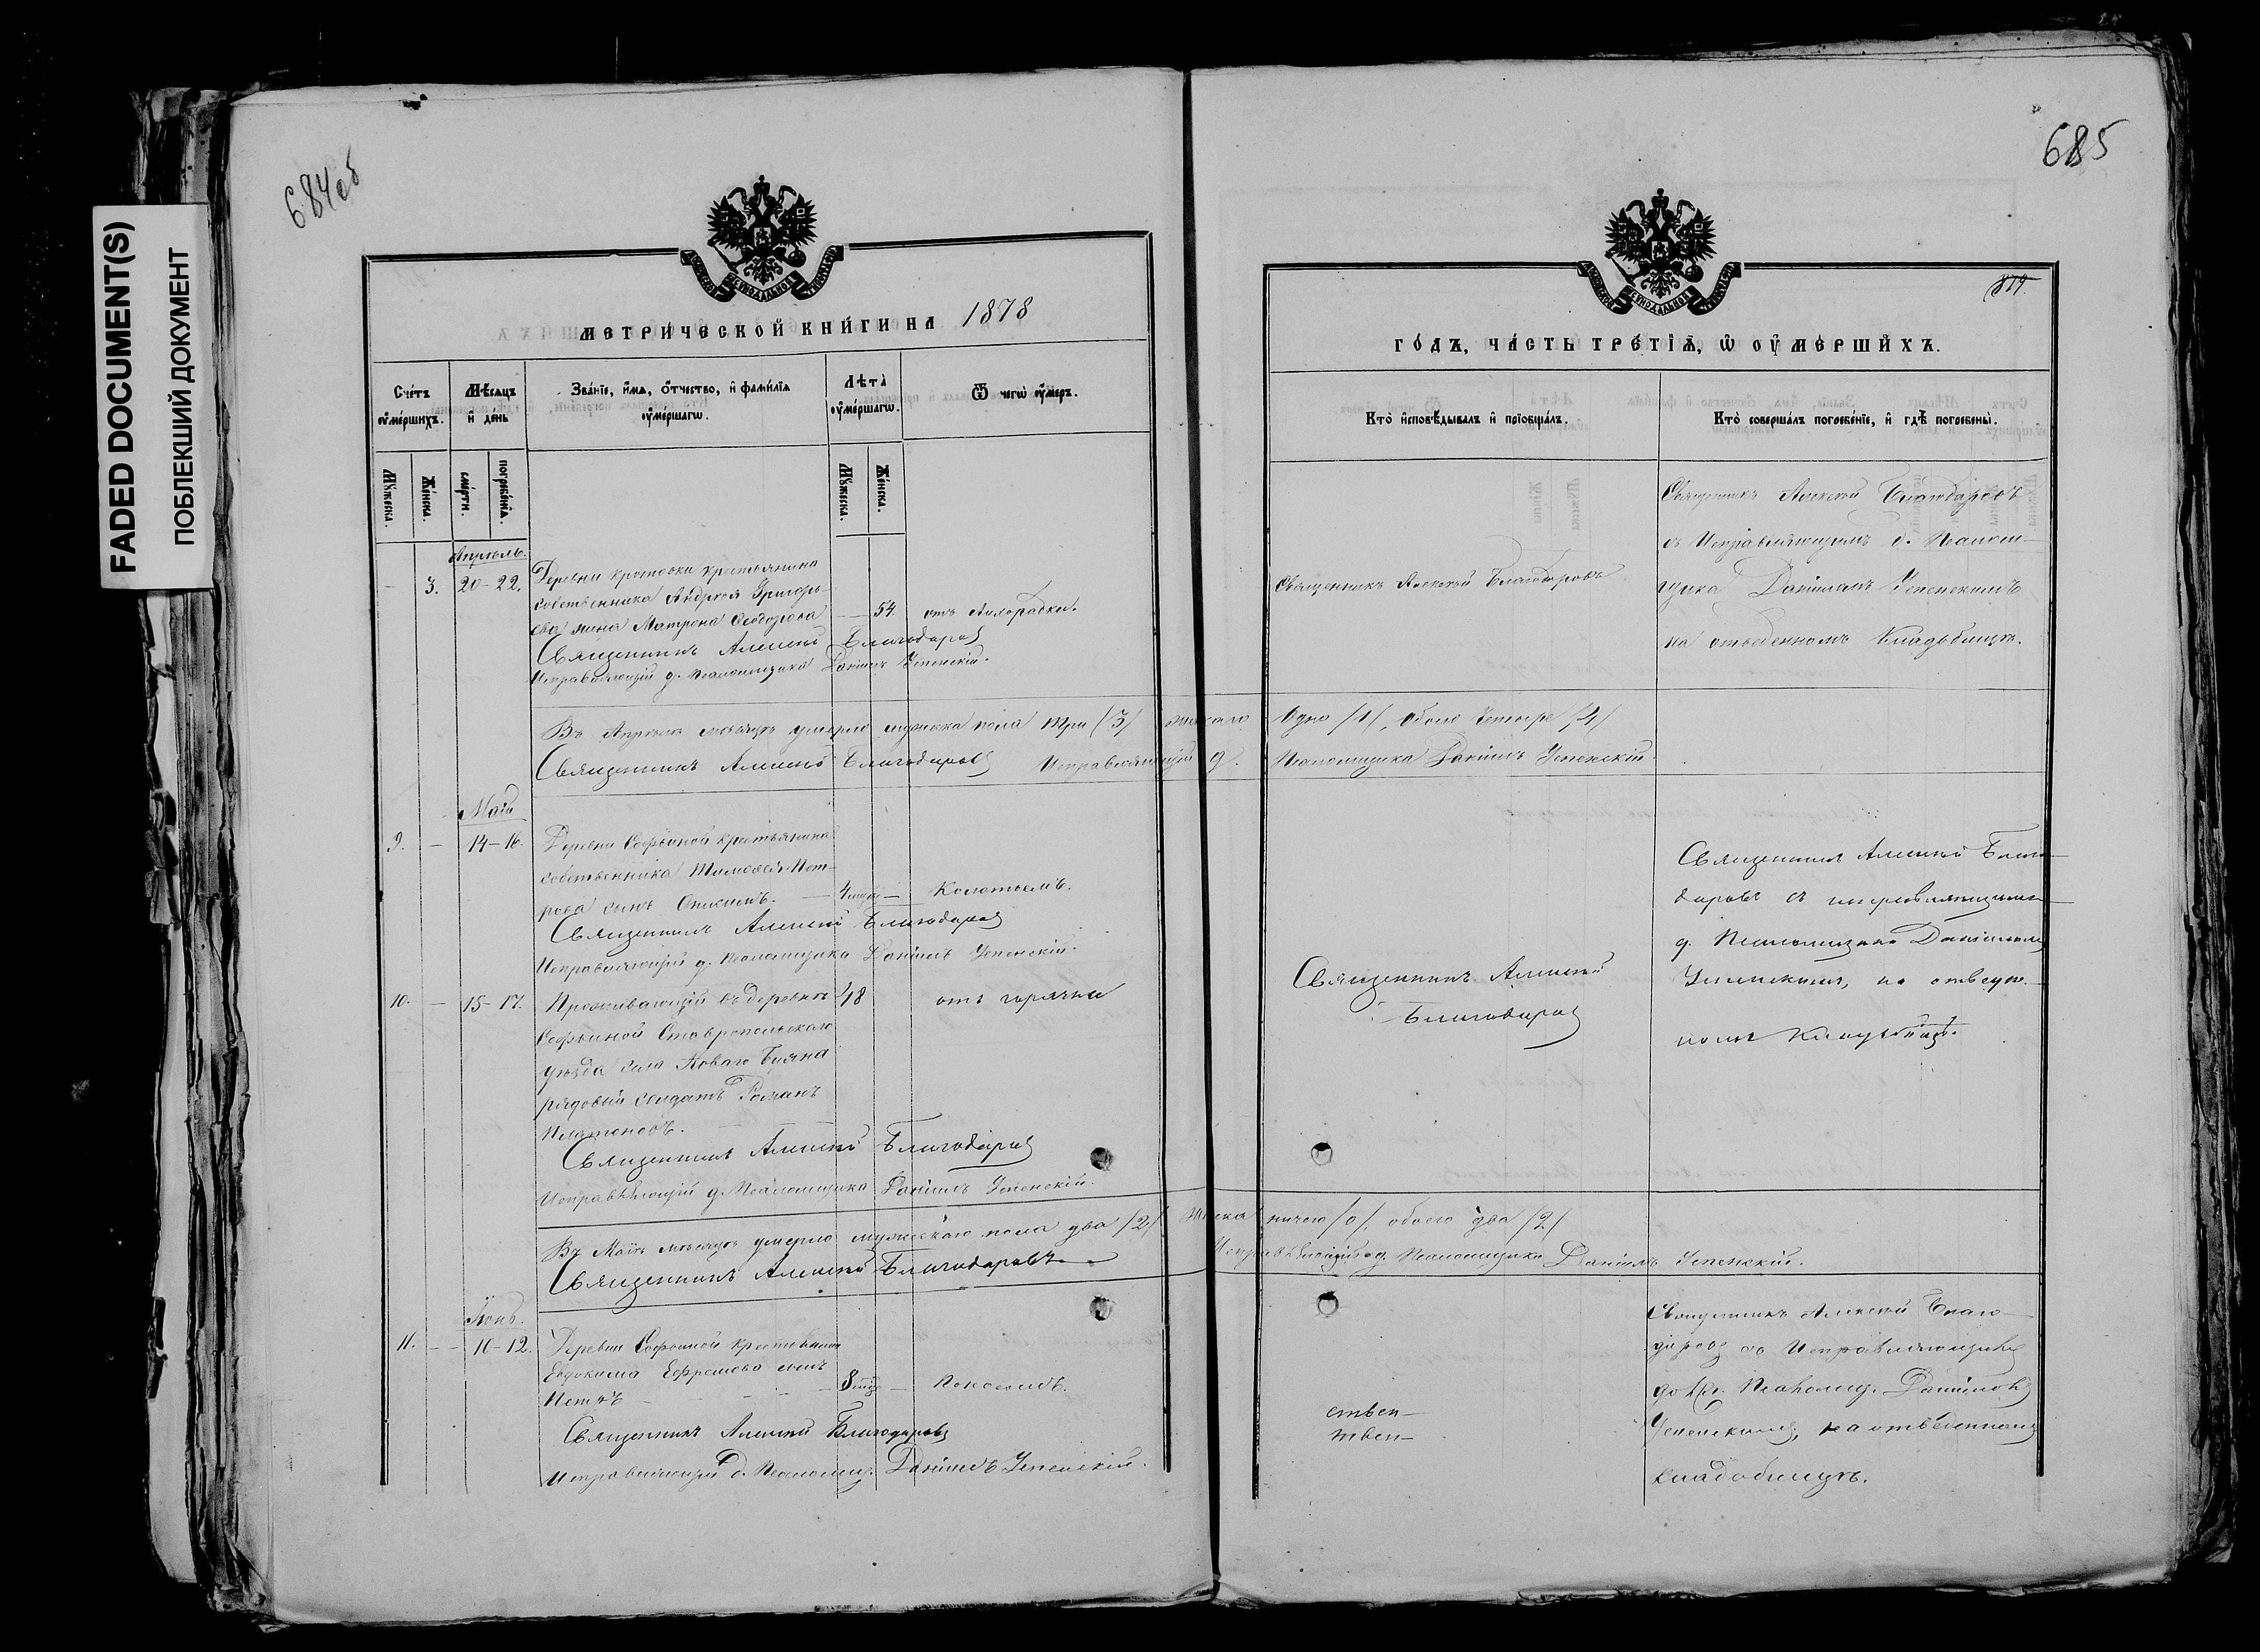 FADED DOCUMENT(S)
ПОБЛЕКШИЙ ДОКУМЕНТ
684об
МЕТРИЧЕСКОЙ КНИГИ НА 1878
Счетъ оумершихъ.
Мѣсяцъ и день
Званіе, имя, отчество, и фамилія оумершагѡ.
Лѣта оумершагѡ.
Ѿ чегѡ оумеръ.
Мужеска.
Женска.
смерти.
погребенія.
Мужеска.
Женска.
Апрѣль.
3. 20-22. Деревни Кротовки крестьянина
собственника Андрея Григорь-
ева жена Матрона Ѳеодорова — 54. отъ лихорадки.
Священникъ Алексій Благодаровъ
Исправляющій д. Псаломщика Даніилъ Успенскій.
Въ Апрѣлѣ мѣсяцѣ умерло мужеска пола три /3/ женскаго Одно /1/, обоего четыре /4/
Священникъ Алексій Благодаровъ Исправляющій д. Псаломщика Даніилъ Успенскій
Май
9. — 14-16. Деревни Софьиной крестьянина
собственника Тимоѳея Пет-
рова сынъ Онисимъ. — 4 — Колотьемъ.
Священникъ Алексій Благодаровъ
Исправляющій д. Псаломщика Даніилъ Успенскій.
10. — 15-17. Проживающій въ деревнѣ 48 отъ горячки
Софьиной Ставропольскаго
уѣзда села Новаго Буяна
рядовый солдатъ Романъ
Платоновъ.
Священникъ Алексій Благодаровъ
Исправляющій д. Псаломщика Даніилъ Успенскій.
Въ Маѣ мѣсяцѣ умерло мужескаго пола два /2/ Женска ничего /0/, обоего два /2/
Священникъ Алексій Благодаровъ Исправляющій д. Псаломщика Даніилъ Успенскій.
Іюнь.
11. — 10-12. Деревни Софьиной крестьянина
Евдокима Ефремова сынъ
Петръ — 8 — Поносомъ.
Священникъ Алексій Благодаровъ
Исправляющій д. Псаломщ. Даніилъ Успенскій.
685
ГОДЪ, ЧАСТЬ ТРЕТІЯ, Ѡ ОУМЕРШИХЪ.
Кто исповѣдывалъ и пріобщалъ.
Кто совершалъ погребеніе, и гдѣ погребены.
Священникъ Алексій Благодаровъ
Священникъ Алексій Благодаровъ
съ Исправляющимъ д. Псалом-
щика Даніиломъ Успенскимъ
на отведенномъ Кладбищѣ.
Священникъ Алексій
Благодаровъ
Священникъ Алексій Благо-
даровъ съ исправляющимъ
д. Псаломщика Даніиломъ
Успенскимъ, на отведен-
номъ Кладбищѣ.
ствен-
твен-
Священникъ Алексій Благо-
даровъ со Исправляющимъ
долж. Псаломщ. Даніиломъ
Успенскимъ, на отведенномъ
кладбищѣ.